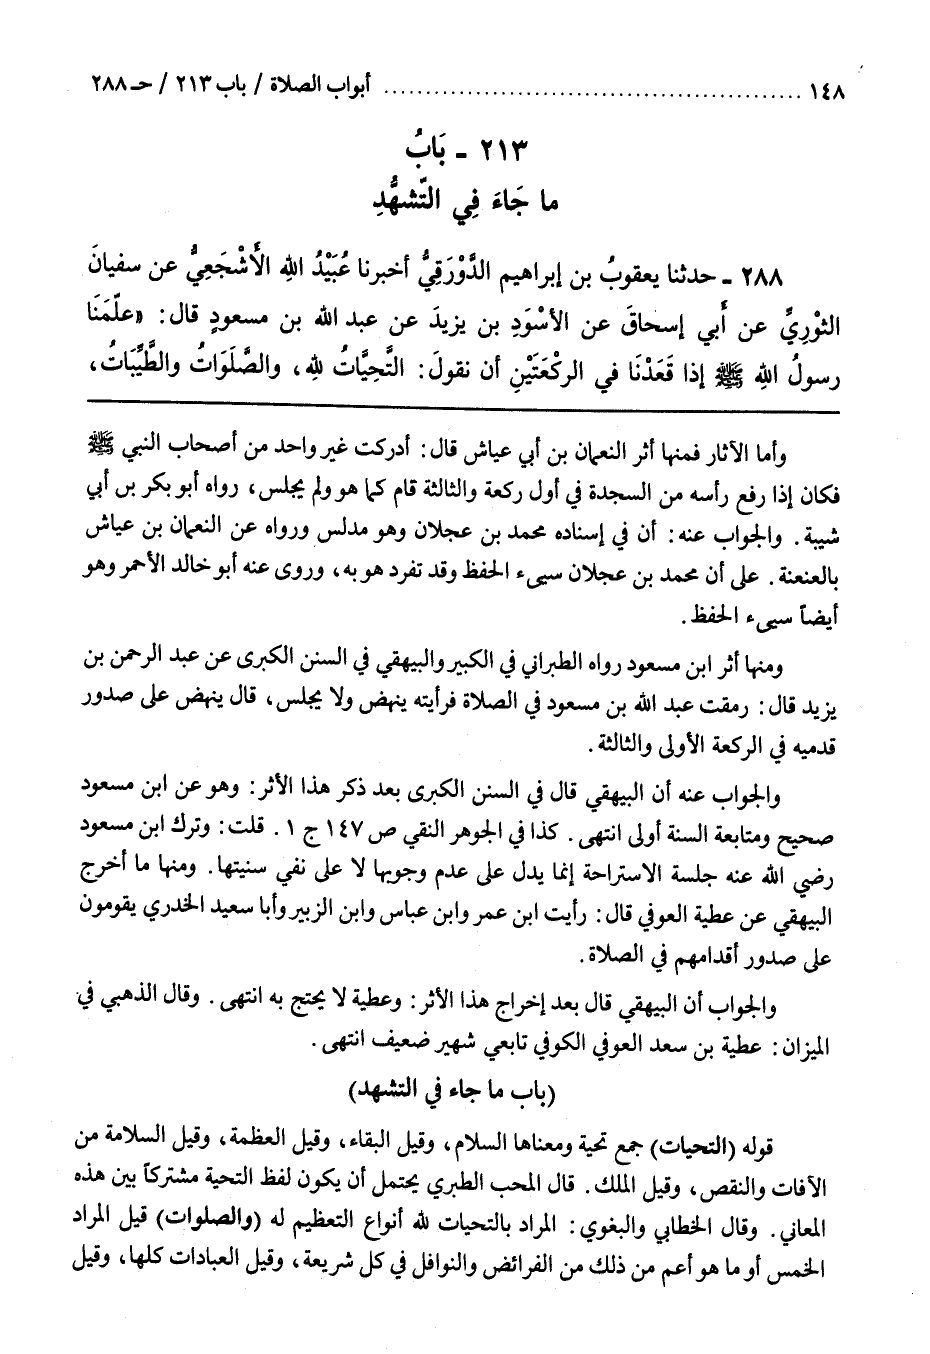 ١٤٨ ................................................ أبواب الصلاة / باب ٢١٣ / حـ ٢٨٨
٢١٣ - بَابُ
ما جَاءَ فِي التَّشهُّدِ
٢٨٨ - حدثنا يعقوبُ بن إبراهيم الدَّوْرَقِيُّ أخبرنا عُبَيْدُ اللهِ الأَشْجَعِيُّ عن سفيانَ
الثوْرِيِّ عن أَبي إسحاقَ عن الأسْوَدِ بن يزيدَ عن عبد الله بن مسعودٍ قال: «علّمَنَا
رسولُ اللهِ ﷺ إذا قَعَدْنَا في الركْعَتَيْنِ أن نقولَ: التَّحِيَّاتُ للهِ، والصَّلَوَاتُ والطَّيِّبَاتُ،
وأما الآثار فمنها أثر النعمان بن أبي عياش قال: أدركت غير واحد من أصحاب النبي ﷺ
فكان إذا رفع رأسه من السجدة في أول ركعة والثالثة قام كما هو ولم يجلس، رواه أبو بكر بن أبي
شيبة. والجواب عنه: أن في إسناده محمد بن عجلان وهو مدلس ورواه عن النعمان بن عياش
بالعنعنة. على أن محمد بن عجلان سيىء الحفظ وقد تفرد هو به، وروى عنه أبو خالد الأحمر وهو
أيضاً سيىء الحفظ.
ومنها أثر ابن مسعود رواه الطبراني في الكبير والبيهقي في السنن الكبرى عن عبد الرحمن بن
يزيد قال: رمقت عبد الله بن مسعود في الصلاة فرأيته ينهض ولا يجلس، قال ينهض على صدور
قدميه في الركعة الأولى والثالثة.
والجواب عنه أن البيهقي قال في السنن الكبرى بعد ذكر هذا الأثر: وهو عن ابن مسعود
صحيح ومتابعة السنة أولى انتهى. كذا في الجوهر النقي ص ١٤٧ ج ١. قلت: وترك ابن مسعود
رضي الله عنه جلسة الاستراحة إنما يدل على عدم وجوبها لا على نفي سنيتها. ومنها ما أخرج
البيهقي عن عطية العوفي قال: رأيت ابن عمر وابن عباس وابن الزبير وأبا سعيد الخدري يقومون
على صدور أقدامهم في الصلاة.
والجواب أن البيهقي قال بعد إخراج هذا الأثر: وعطية لا يحتج به انتهى. وقال الذهبي في
الميزان: عطية بن سعد العوفي الكوفي تابعي شهير ضعيف انتهى.
(باب ما جاء في التشهد)
قوله (التحيات) جمع تحية ومعناها السلام، وقيل البقاء، وقيل العظمة، وقيل السلامة من
الآفات والنقص، وقيل الملك. قال المحب الطبري يحتمل أن يكون لفظ التحية مشتركاً بين هذه
المعاني. وقال الخطابي والبغوي: المراد بالتحيات لله أنواع التعظيم له (والصلوات) قيل المراد
الخمس أو ما هو أعم من ذلك من الفرائض والنوافل في كل شريعة، وقيل العبادات كلها، وقيل